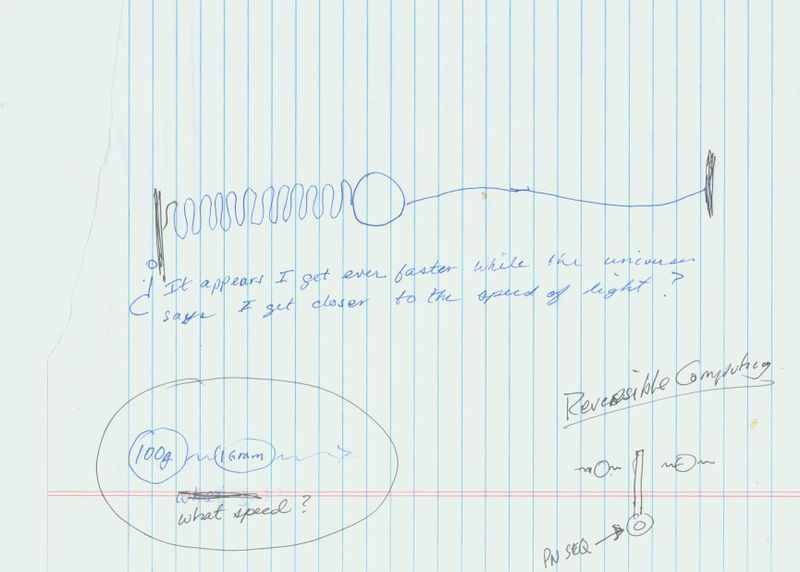 It appears I get ever faster while the universe
says I get closer to the speed of light ?
Reversible Computing
100g
1 Gram
what speed ?
PN SEQ